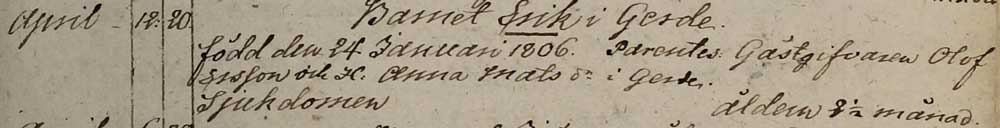 April - 12. 20. Barnet Erik i Gerde.
född den 24 Januari 1806. Parentes: Gästgifvaren Olof
Ersson och H. Anna Mats dr i Gerde.
Sjukdomen åldern 2½ månad.